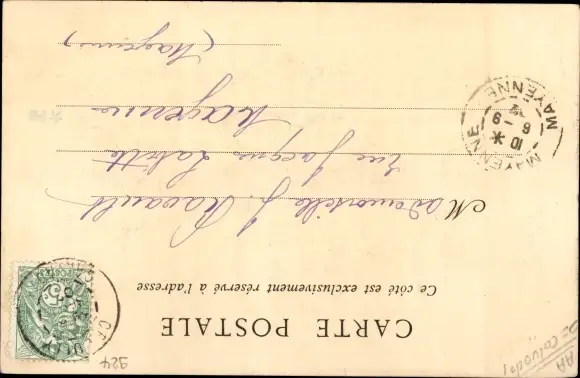 CARTE POSTALE
Ce côté est exclusivement réservé à l'adresse
Mademoiselle J. Ravault
rue Jacques
Mayenne
(Mayenne)
MAYENNE
10 *
6 - 9
MAYENNE
POSTES
5
924
AA